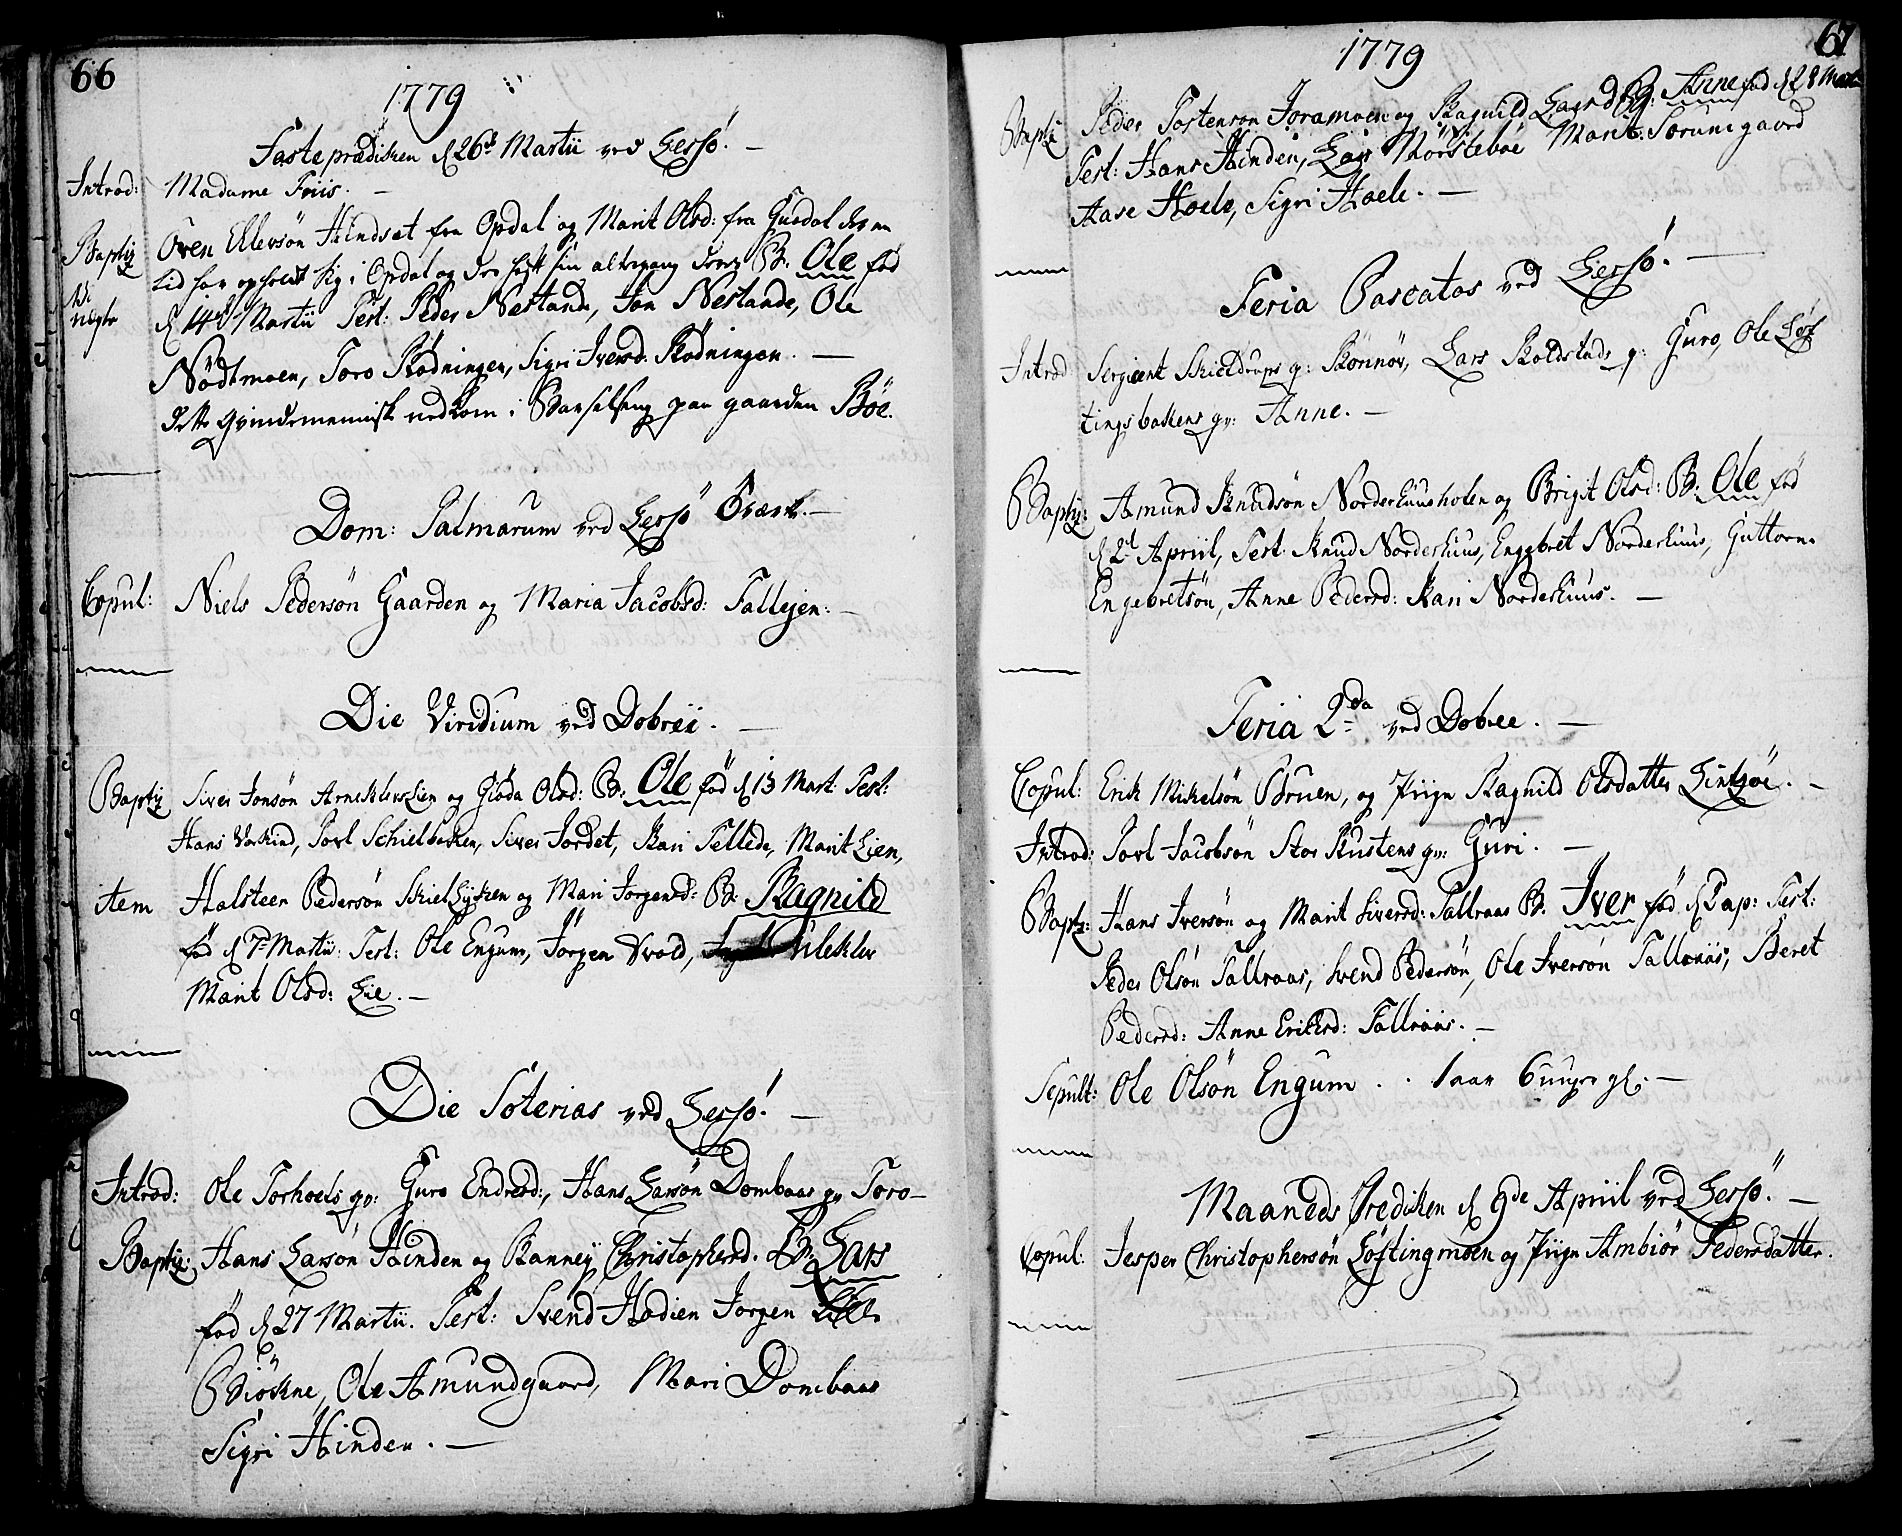 66
1779
Fasteprædiken d 26de Martii ved Lessø. —
Introd: Madame Friis. —
Baptiz Sven Ellevsön Hindset fra Opdal og Marit Olsd: fra
tid har opholdt sig i Opdal og der sin altergang B: Ole fød
d 14de Martii Test: Peder Nestande, Jon Nestande, Ole
Nödtmoen, Toro Rödningen, Sigri Iversd: Rödningen. —
Dette qvindemenniske nedkom i Barselseng paa gaarden Böe.
Dom: Palmarum ved Lessö Værk. —
Copul: Niels Pedersön Gaarden og Maria Jacobsd: Tallejen: —
Die Viridium ved Dobree. —
Baptiz Siver Jonsön og Giöda Olsd: B: Ole fød d 13 Mart: Test:
Hans, Povl Schielbacken, Siver Jordet, Kari Tellede, Marit Lien,
item Halsteen Pedersön og Mari Jorgensd: B: Ragnild
fød d 7de Martii: Test: Ole Engum, Jörgen, Uleklev
Marit Olsd: Lie. —
Die Soterias ved Lessö. —
Introd: Ole Torhoels qv: Guro Endresd:, Hans Larsön Dombaas qv Toro —
Baptiz: Hans Larsön Hinden og Ranney Christophersd. B: Lars
fød d 27 Martii. Test: Svend Hodien Jorgen
Biökne, Ole Amundgaard, Mari Dombaas
Sigri Hinden. —
67
1779
Baptiz Peder Tostensøn Joramoen og Ragnild Larsd B: Anne fød d 28 Martii
Test: Hans Hinden, Lars Mörsteböe Marit Sorumgaard
Aase Hoele, Sigri Hoele. —
Feria Pascatos ved Lessö. —
Introd Sergeant Skieldrups q: Lars Skoldstads q: Guro, Ole Löf
tingsbackens qv: Anne. —
Baptiz: Amund Knudsön Norderhuusholen og Brigit Olsd: B: Ole fød
d 2d Apriil, Test: Knud Norderhuus, Engebret Norderhuus, Guttorm
Engebretsön, Anne Pedersd: Kari Norderhuus. —
Feria 2da ved Dobree. —
Copul: Erik Mikelsön Bruen, og Piige Ragnild Olsdatter —
Introd: Povl Jacobsön Stor Rustens qv: Guri. —
Baptz: Hans Iversön og Marit Siversd: Tallraas B. Iver fød d 2 ap: Test:
Peder Olsön Tallraas, Svend Pedersön, Ole Iversön Tallraas, Beret
Pedersd: Anne Ericksd: Tallraas. —
Sepult: Ole Olsön Engum . . 1 aar 6 uger gl: —
Maaneds Prediken d 9de Apriil ved Lessö. —
Copul: Jesper Christophersön Löftingmoen og Piige Ambiör Pedersdatter.